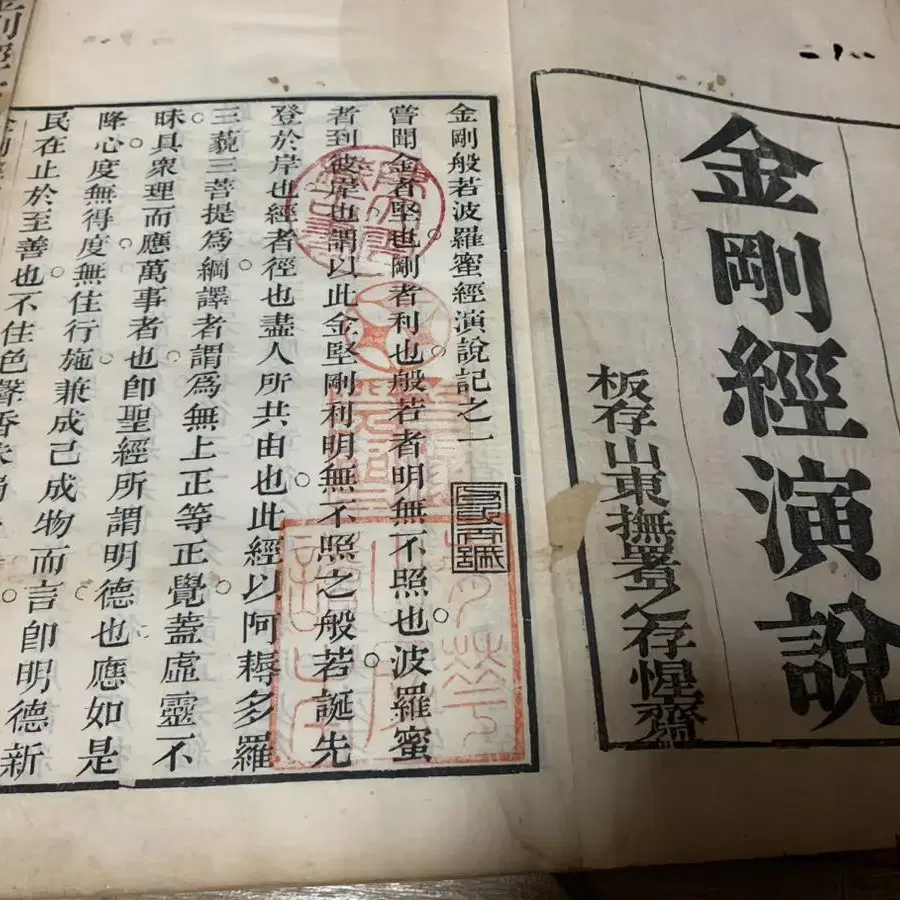 金剛經演說
板存山東撫署之存惺齋
金剛般若波羅蜜經演說記之一
嘗聞金者堅也剛者利也般若者明無不照也波羅蜜
者到彼岸也謂以此金堅剛利明無不照之般若誕先
登於岸也經者徑也盡人所共由也此經以阿耨多羅
三藐三菩提爲綱譯者謂爲無上正等正覺蓋虛靈不
昧具衆理而應萬事者也卽聖經所謂明德也應如是
降心度無得度無住行施兼成己成物而言卽明德新
民在止於至善也不住色聲香味